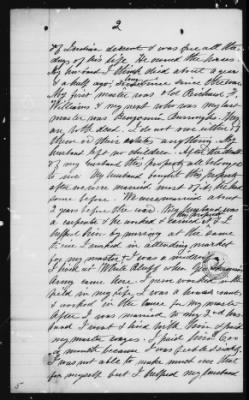 2
of Indian descent & was free all the
days of his life. He owned the horses.
My husband I think died about a year
& a half ago;
My first master was old Richard F.
Williams & my next who was my last
master was Benjamin Burroughs. They
are both dead. I do not owe either of
them or their estates anything. My
husband left no children. After the death
of my husband this property all belonged
to me. My husband bought this property
after we were married most of it, he had
some before. We were married about
2 years before the war. My husband was
a carpenter & he worked & earned it & I
helped him by nursing at the same
time I worked in attending market
for my master & I was a midwife.
I lived at White Bluff when Gen Sherman's
Army came there. I never worked in the
field in my life, I was a house servant
& worked in the house for my master
After I was married to my 2nd hus-
band I went & lived with him & paid
my master wages. I paid him
a month because I was
I was not able to make much more than
for myself but I helped my husband
5